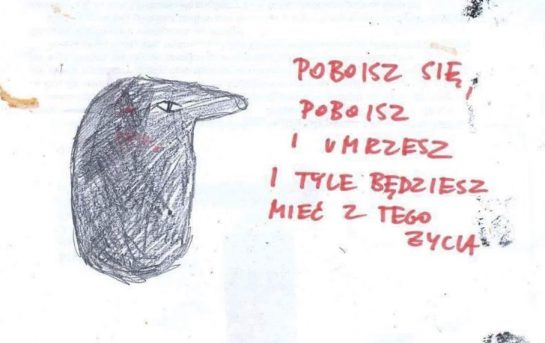 POBOISZ SIĘ,
POBOISZ
I UMRZESZ
I TYLE BĘDZIESZ
MIEĆ Z TEGO
ŻYCIA